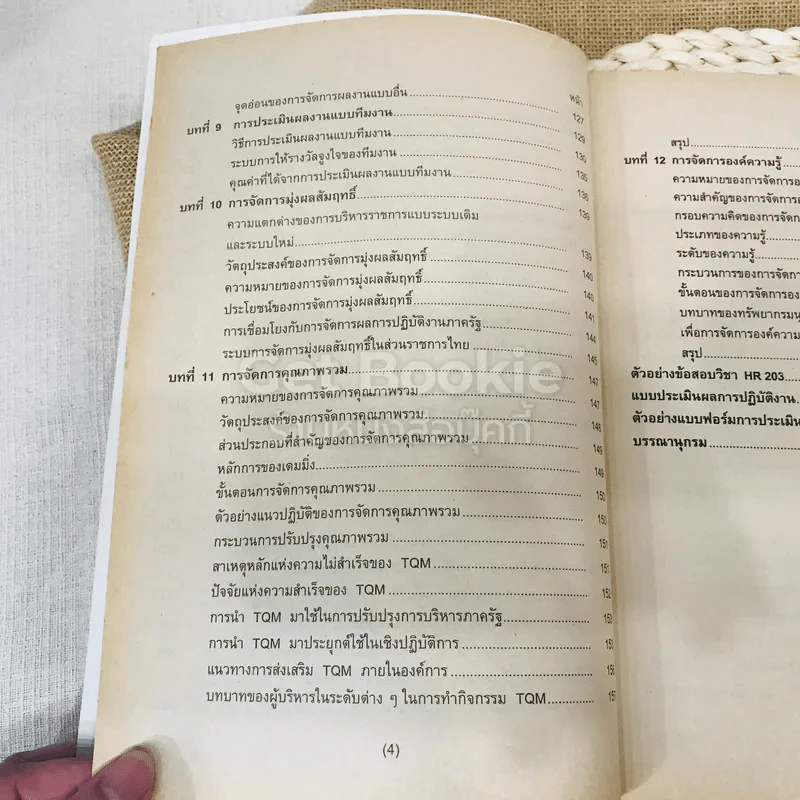 หน้า
จุดอ่อนของการจัดการผลงานแบบอื่น 127
บทที่ 9 การประเมินผลงานแบบทีมงาน 129
วิธีการประเมินผลงานแบบทีมงาน 130
ระบบการให้รางวัลจูงใจของทีมงาน 135
คุณค่าที่ได้จากการประเมินผลงานแบบทีมงาน 138
บทที่ 10 การจัดการมุ่งผลสัมฤทธิ์ 139
ความแตกต่างของการบริหารราชการแบบระบบเดิม
และระบบใหม่ 139
วัตถุประสงค์ของการจัดการมุ่งผลสัมฤทธิ์ 140
ความหมายของการจัดการมุ่งผลสัมฤทธิ์ 140
ประโยชน์ของการจัดการมุ่งผลสัมฤทธิ์ 141
การเชื่อมโยงกับการจัดการผลการปฏิบัติงานภาครัฐ 144
ระบบการจัดการมุ่งผลสัมฤทธิ์ในส่วนราชการไทย 145
บทที่ 11 การจัดการคุณภาพรวม 147
ความหมายของการจัดการคุณภาพรวม 147
วัตถุประสงค์ของการจัดการคุณภาพรวม 148
ส่วนประกอบที่สำคัญของการจัดการคุณภาพรวม 149
หลักการของเดมมิ่ง 149
ขั้นตอนการจัดการคุณภาพรวม 150
ตัวอย่างแนวปฏิบัติของการจัดการคุณภาพรวม 150
กระบวนการปรับปรุงคุณภาพรวม 151
สาเหตุหลักแห่งความไม่สำเร็จของ TQM 151
ปัจจัยแห่งความสำเร็จของ TQM 152
การนำ TQM มาใช้ในการปรับปรุงการบริหารภาครัฐ
การนำ TQM มาประยุกต์ใช้ในเชิงปฏิบัติการ
แนวทางการส่งเสริม TQM ภายในองค์การ
บทบาทของผู้บริหารในระดับต่าง ๆ ในการทำกิจกรรม TQM
(4)
สรุป
บทที่ 12 การจัดการองค์ความรู้
ความหมายของการจัดการอง
ความสำคัญของการจัดการอ
กรอบความคิดของการจัดก
ประเภทของความรู้
ระดับของความรู้
กระบวนการของการจัดกา
ขั้นตอนของการจัดการอง
บทบาทของทรัพยากรมนุ
เพื่อการจัดการองค์ความ
สรุป
ตัวอย่างข้อสอบวิชา HR 203
แบบประเมินผลการปฏิบัติงาน
ตัวอย่างแบบฟอร์มการประเมิน
บรรณานุกรม
Get Bookie
ร้านหนังสือบุ๊คกี้